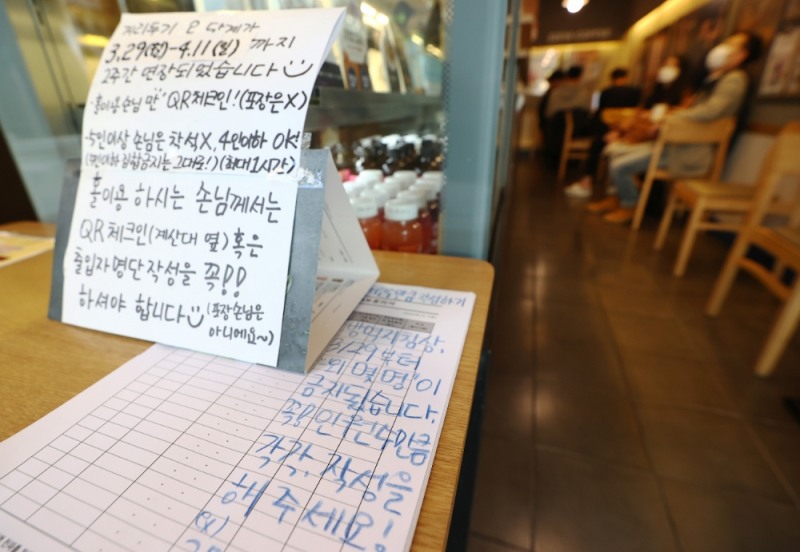 거리두기 2 단계가
3.29(월)-4.11(일) 까지
2주간 연장되었습니다
·홀이용손님 만 QR체크인!(포장은X)
·5인이상 손님은 착석X, 4인이하 OK!
(5인이하 집합금지는 그대로!)(최대1시간)
홀이용 하시는 손님께서는
QR체크인(계산대 옆) 혹은
출입자명단작성을 꼭!!
하셔야 합니다 (포장손님은
아니에요~)
작성하기
부터
"외 몇명"이
금지됩니다.
꼭! 인원수만큼
각각, 작성을
해주세요!